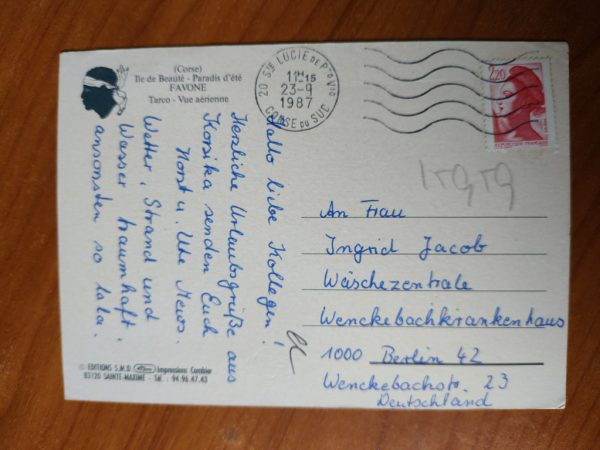 (Corse)
Ile de Beauté - Paradis d'été
FAVONE
Tarco - Vue aérienne
20 STE LUCIE DE PTO VIO
11H15
23-9
1987
CORSE DU SUD
2,20
REPUBLIQUE FRANÇAISE
Hallo liebe Kollegen!
Herzliche Urlaubsgrüße aus
Korsika senden Euch
Horst u. Ute Mews.
Wetter, Strand und
Wasser traumhaft,
ansonsten so lala.
An Frau
Ingrid Jacob
Wäschezentrale
Wenckebachkrankenhaus
1000 Berlin 42
Wenckebachstr. 23
Deutschland
© EDITIONS S.M.D. Impressions Combier
83120 SAINTE-MAXIME - Tél. : 94.96.47.43